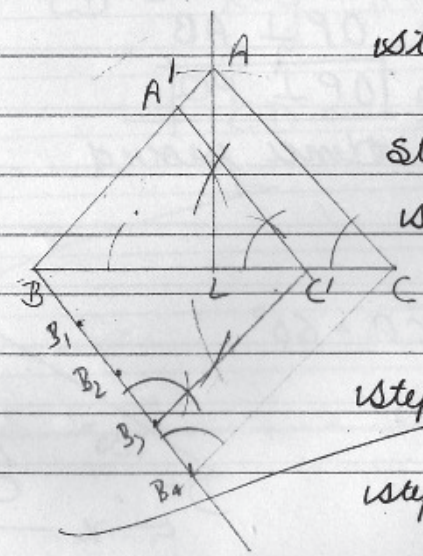 A
A'
B
L
C'
C
B₁
B₂
B₃
B₄
step
step